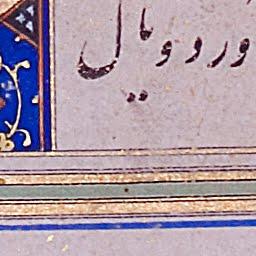 ورد و یال